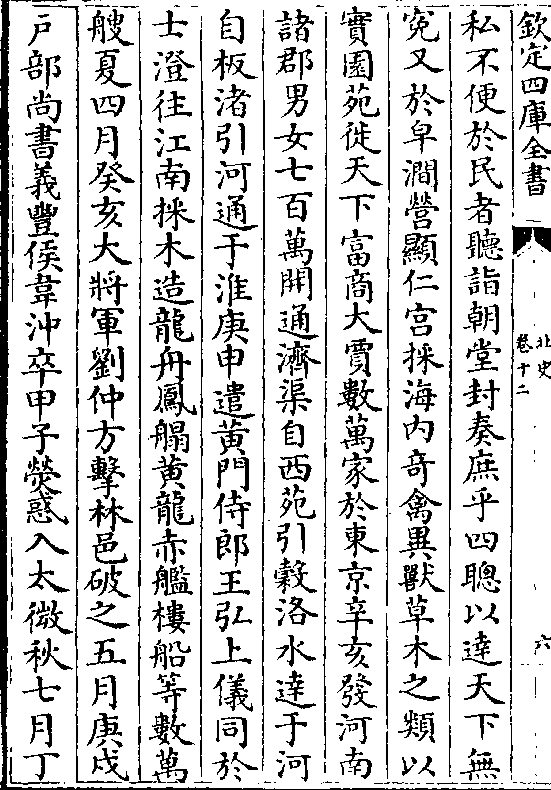 欽定四庫全書
北史
卷十二
六
私不便於民者聽詣朝堂封奏庶乎四聰以達天下無
寃又於皁澗營顯仁宫採海内奇禽異獸草木之類以
實園苑徙天下富商大賈數萬家於東京辛亥發河南
諸郡男女七百萬開通濟渠自西苑引榖洛水達于河
自板渚引河通于淮庚申遣黄門侍郎王弘上儀同於
士澄往江南採木造龍舟鳳䑽黄龍赤艦樓船等數萬
艘夏四月癸亥大將軍劉仲方擊林邑破之五月庚戌
戸部尚書義豐侯韋沖卒甲子熒惑入太微秋七月丁